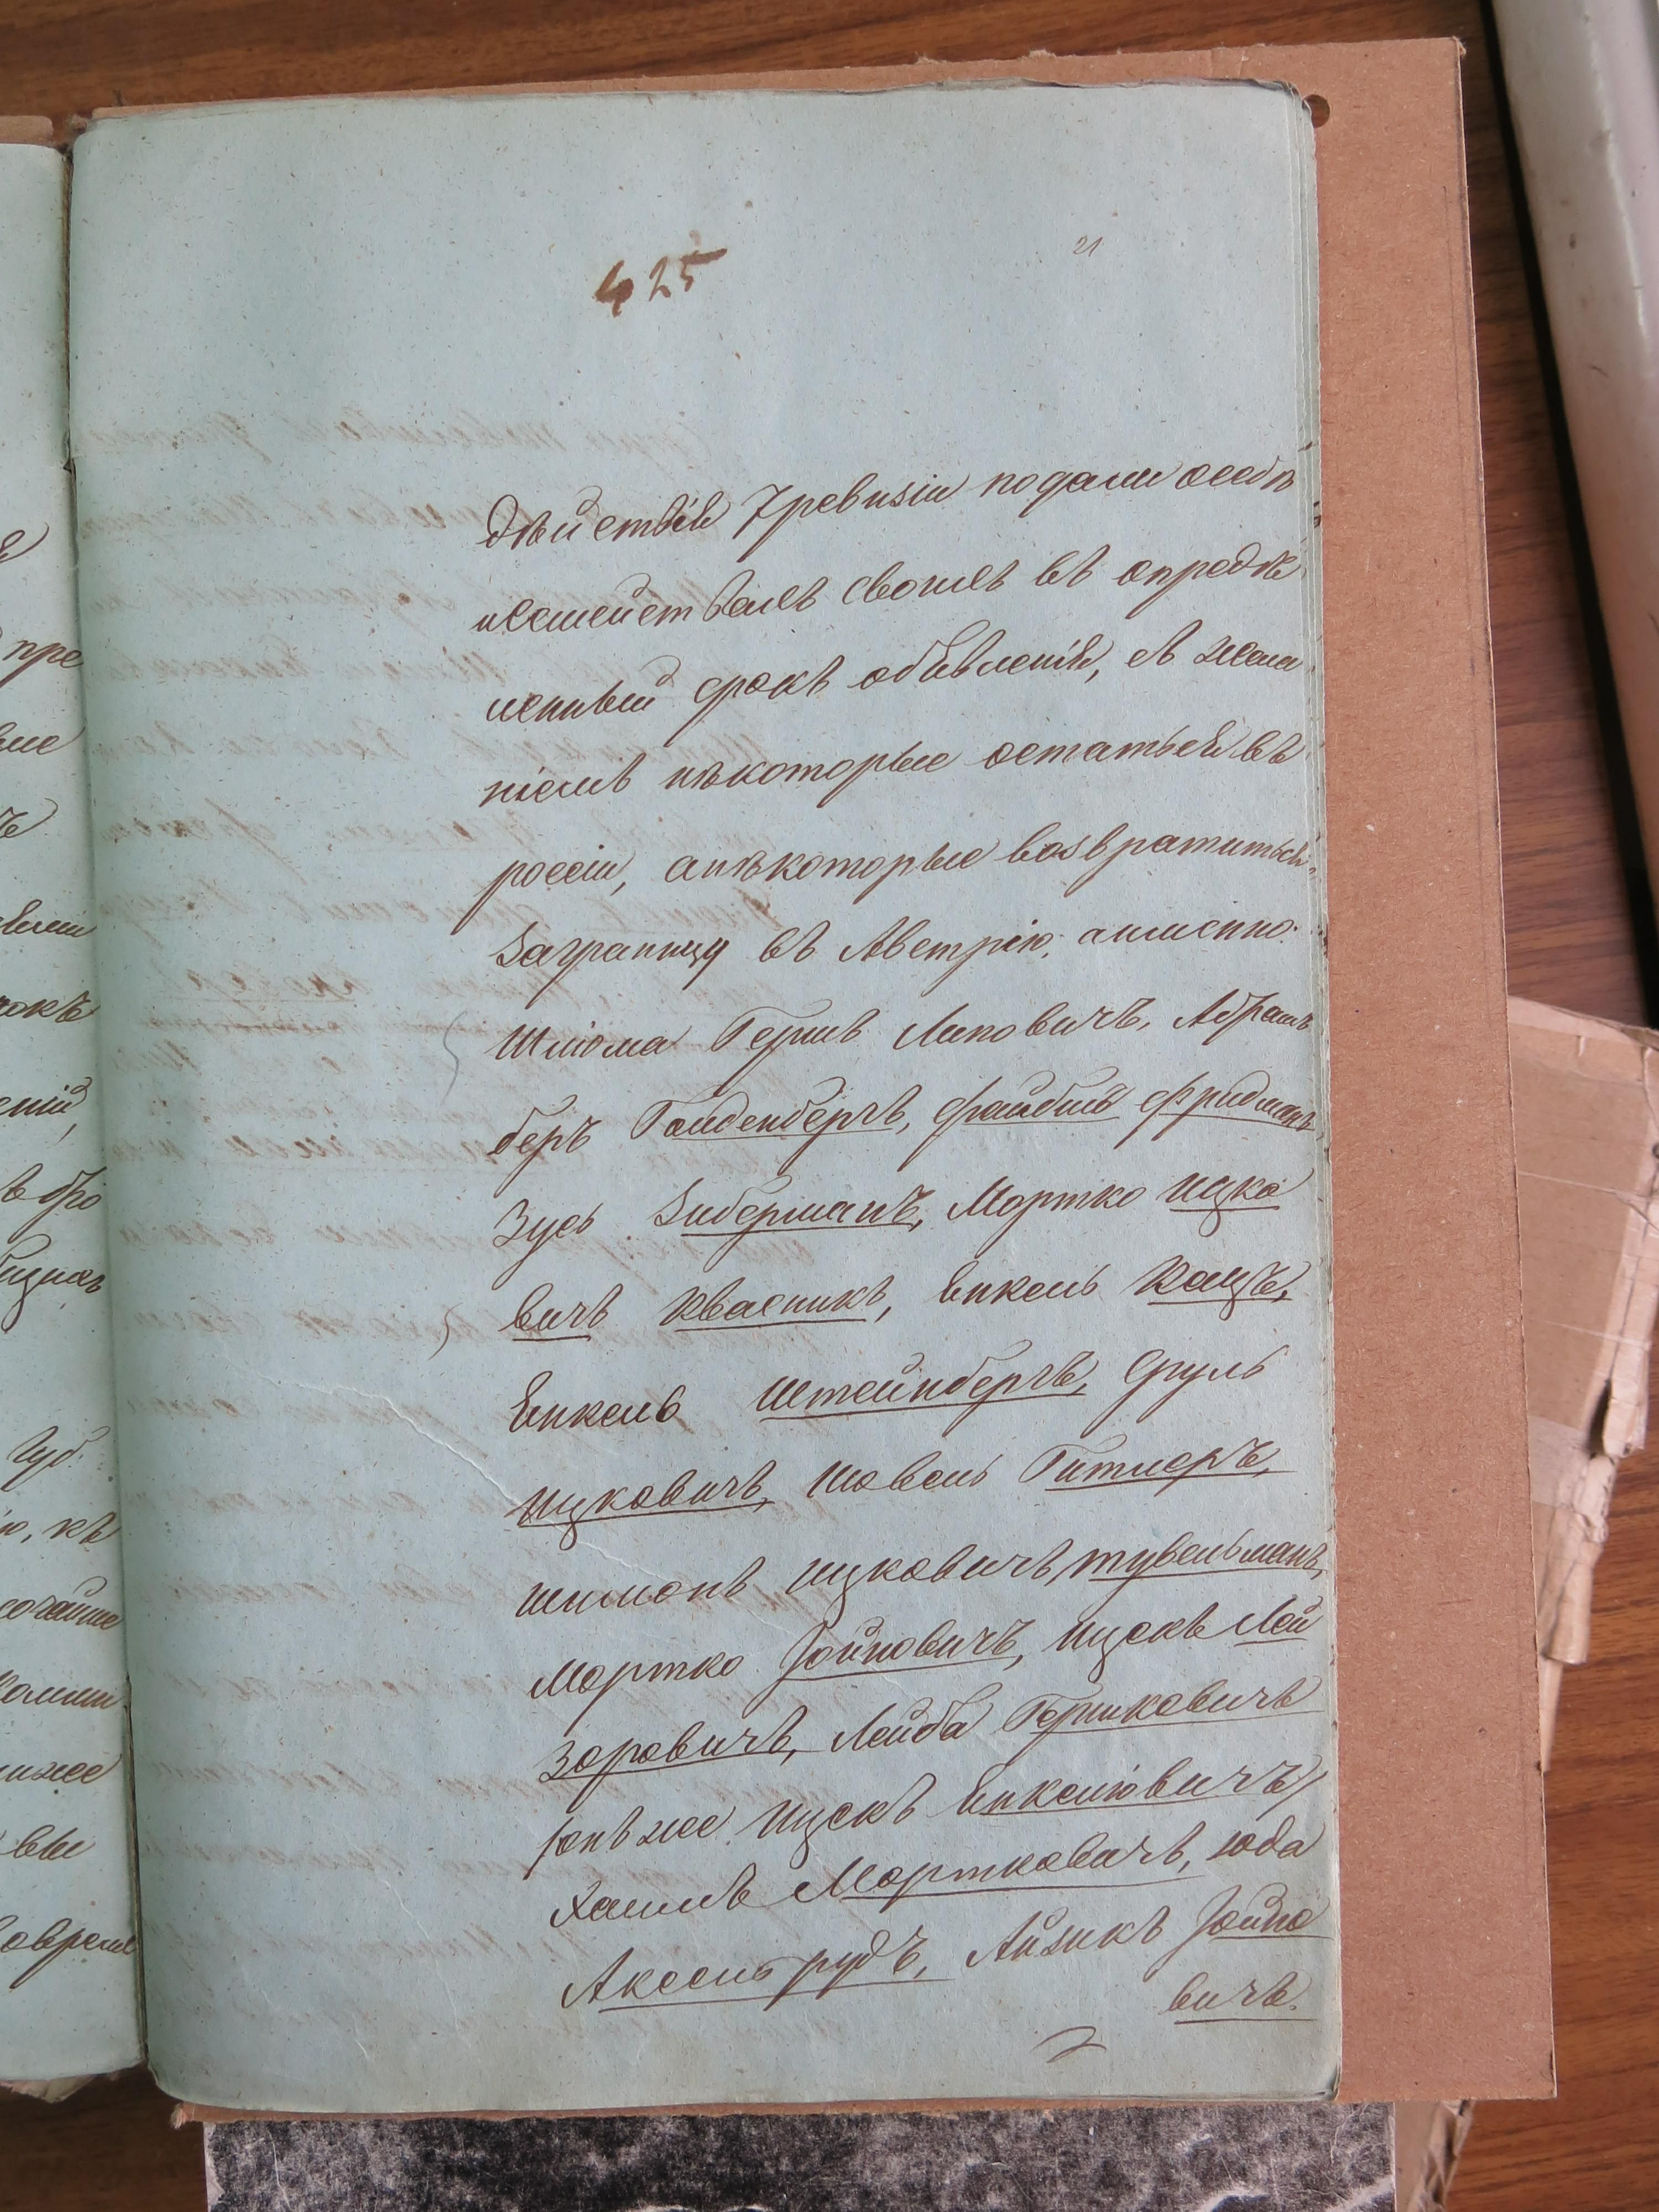 425
21
дѣйствія 7 ревизіи подали осебѣ
исемействахъ своихъ въ опредѣ
ленный срокъ объявленія, съ жела
ніемъ нѣкоторые остаться въ
россіи, анѣкоторые возвратиться
заграницу въ Австрію, аименно:
Шлюма Гершъ Липовичъ, Абрамъ
беръ Голденберъ, файбишъ фридманъ,
Зусь Зиберманъ, Мортко ицко
вичъ квасникъ, Янкель Кацъ,
Янкель Штейнберъ, Сруль
ицковичъ, Шовель Гитлеръ,
шимонъ ицковичъ, тувельманъ,
Мортко Зойновичъ, ицекъ Лей
зоровичъ, Лейба Гершковичъ
/онъ же ицекъ Янкелювичъ/
Хаимъ Мортковичъ, юда
Аксельрудъ, Айзикъ Зойно
вичъ.
пре
ые
въ
окъ
Губ.
ю, къ
ниже
вы
овреме